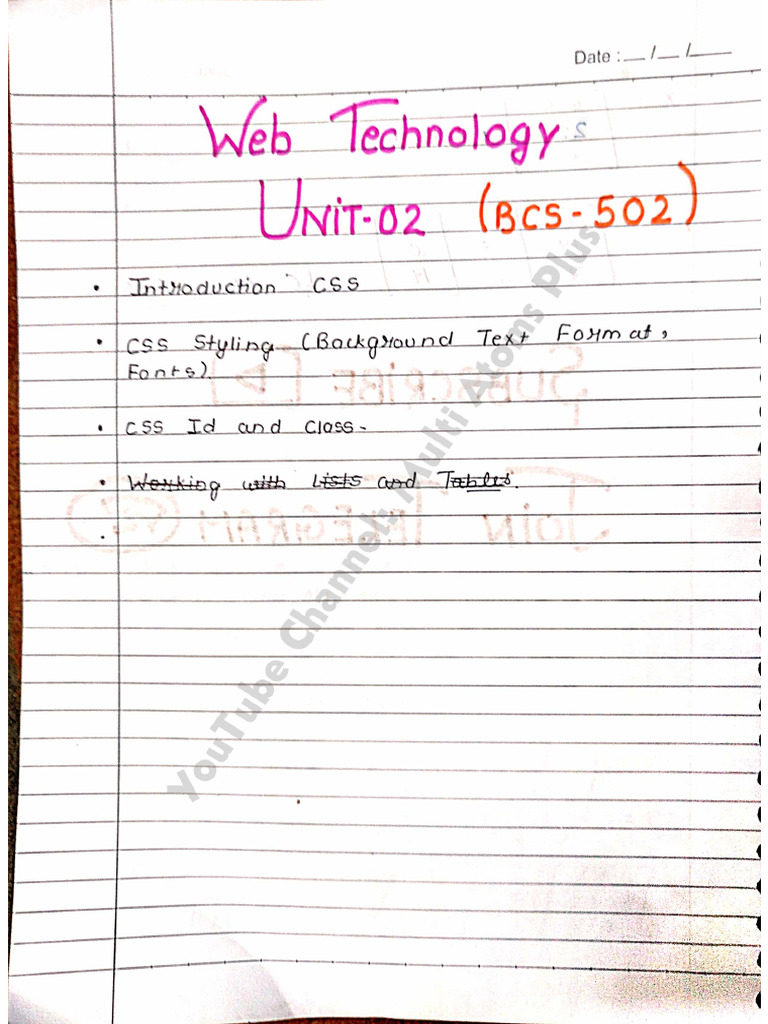 Date : __ / __ / ____
Web Technology s
UNiT-02 (BCS-502)
• Introduction CSS
• CSS Styling (Background Text Format,
Fonts).
SUBSCRIBE
• CSS Id and Class-
• Working with Lists and Tables.
JOIN TELEGRAM
•
YouTube Channel: Multi Atoms Plus